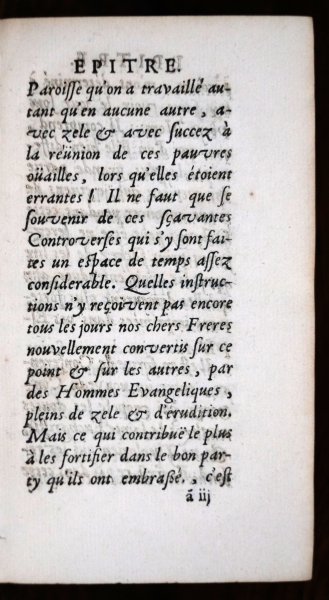 EPITRE.
Paroisse qu'on a travaillé au-
tant qu'en aucune autre, a-
vec zele & avec succez à
la réünion de ces pauvres
oüailles, lors qu'elles étoient
errantes! Il ne faut que se
souvenir de ces sçavantes
Controverses qui s'y sont fai-
tes un espace de temps assez
considerable. Quelles instruc-
tions n'y reçoivent pas encore
tous les jours nos chers Freres
nouvellement convertis sur ce
point & sur les autres, par
des Hommes Evangeliques,
pleins de zele & d'érudition.
Mais ce qui contribuë le plus
à les fortifier dans le bon par-
ty qu'ils ont embrassé, c'est
ã iij